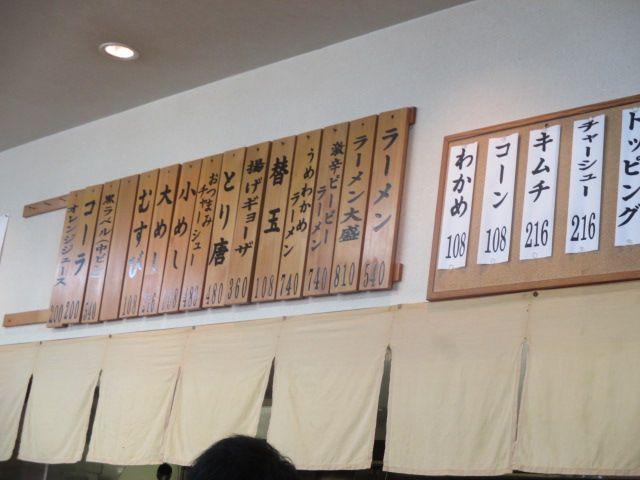 トッピング
チャーシュー 216
キムチ 216
コーン 108
わかめ 108
ラーメン 540
ラーメン大盛 810
激辛ピーピーラーメン 740
うめわかめラーメン 740
替玉 108
揚げギョーザ 360
とり唐 480
おつまみチャーシュー
小めし
大めし
むすび 108
黒ラベル(中ビン) 540
コーラ 200
オレンジジュース 200